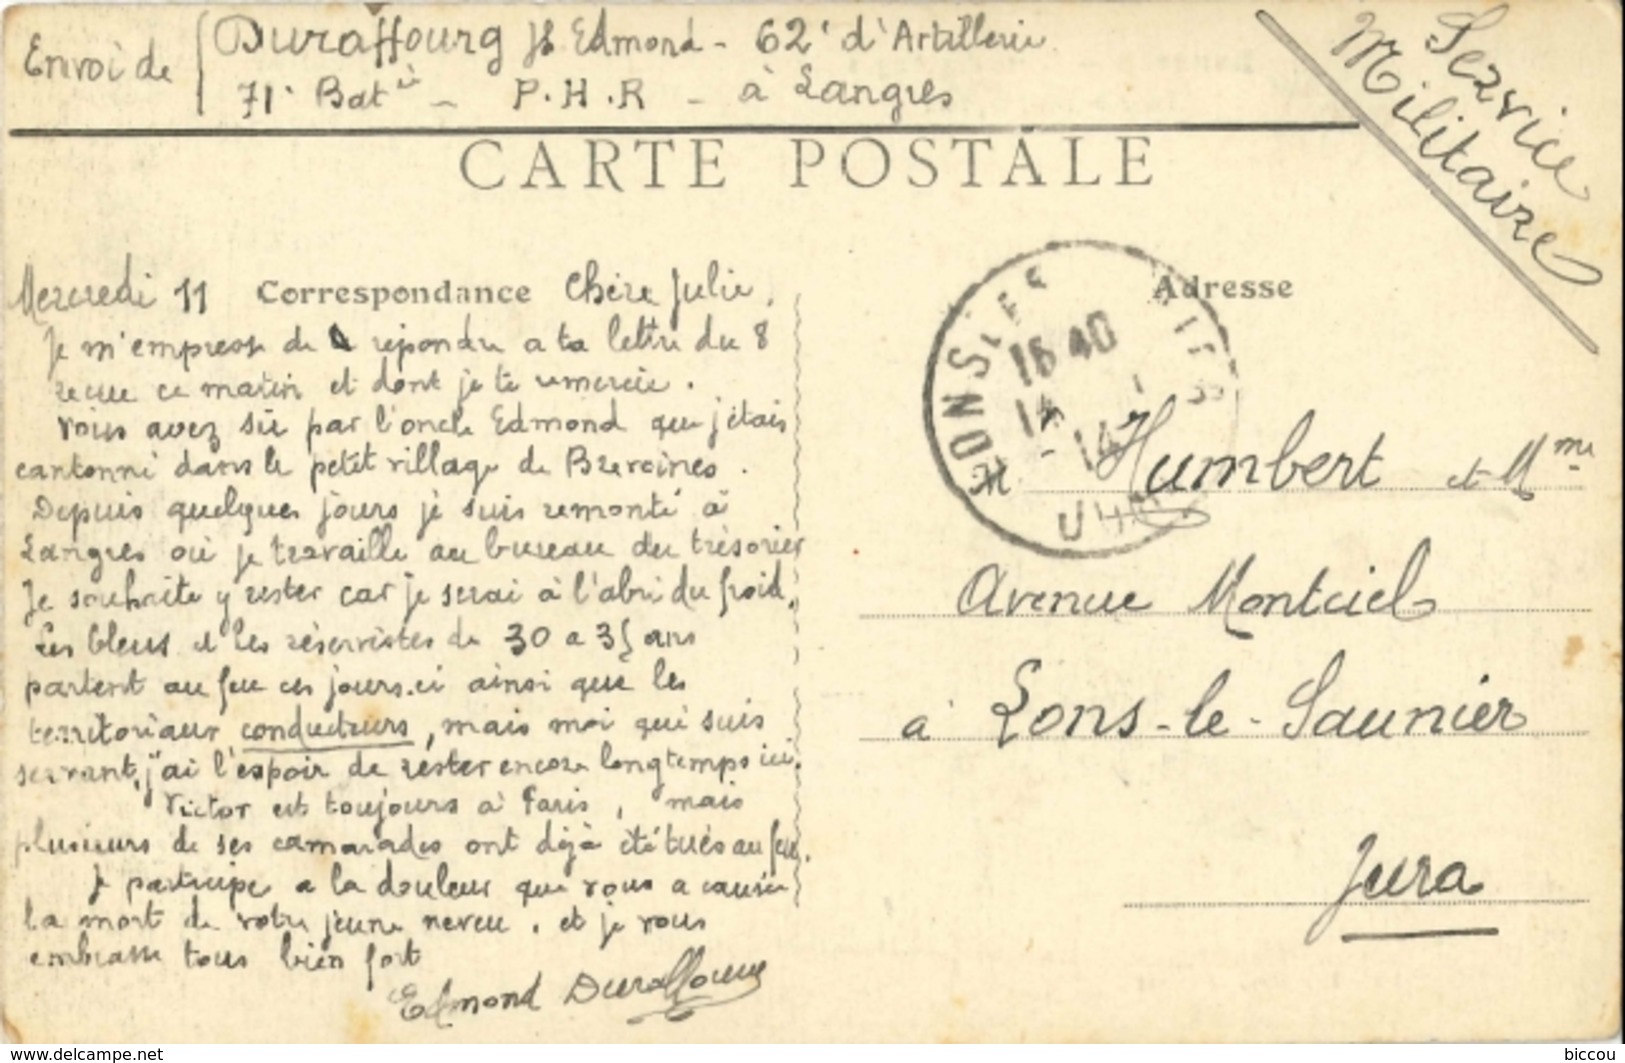 Envoi de Duraffourg Edmond - 62e d'Artillerie
71e Batie - P.H.R - à Langres
Service
Militaire
CARTE POSTALE
Mercredi 11 Correspondance Chère Julie,
Je m'empresse de répondre a ta lettre du 8
recue ce matin et dont je te remercie.
Vous avez sû par l'oncle Edmond que j'étais
cantonné dans le petit village de Brevoines.
Depuis quelques jours je suis remonté à
Langres où je travaille au bureau du trésorier
Je souhaite y rester car je serai à l'abri du froid.
Les bleus et les réservistes de 30 a 35 ans
partent au feu ces jours-ci ainsi que les
territoriaux conducteurs, mais moi qui suis
servant, j'ai l'espoir de rester encore longtemps ici.
Victor est toujours à Paris, mais
plusieurs de ses camarades ont déjà été tués au feu.
Je participe a la douleur que vous a causée
la mort de votre jeune neveu. et je vous
embrasse tous bien fort
Edmond Duraffourg
Adresse
16 40
14
Humbert et Mme
Avenue Montciel
à Lons-le-Saunier
Jura
www.delcampe.net
biccou